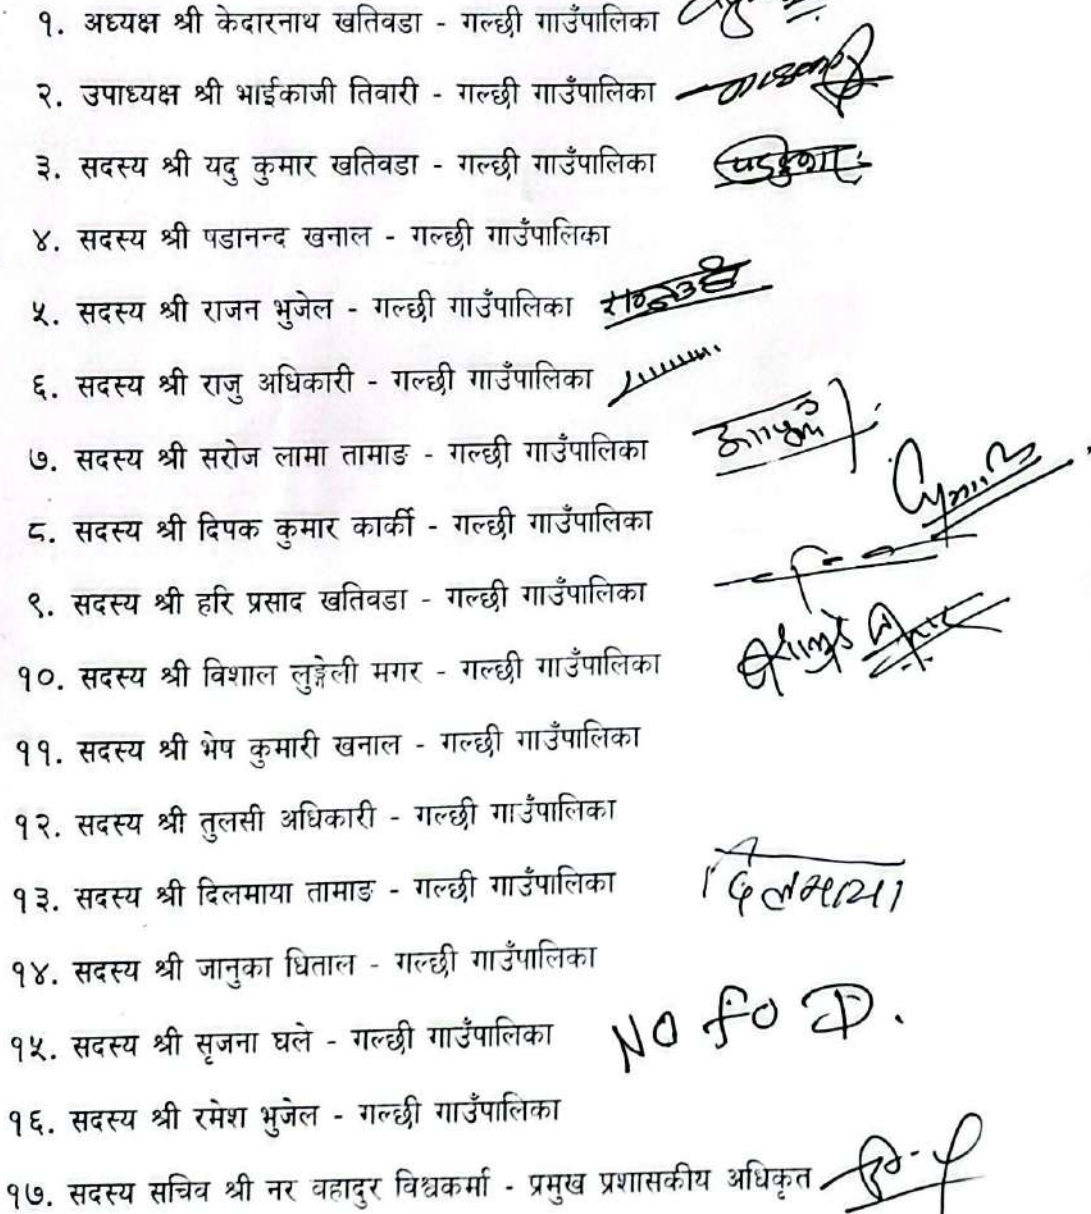 १. अध्यक्ष श्री केदारनाथ खतिवडा - गल्छी गाउँपालिका
२. उपाध्यक्ष श्री भाईकाजी तिवारी - गल्छी गाउँपालिका
३. सदस्य श्री यदु कुमार खतिवडा - गल्छी गाउँपालिका
४. सदस्य श्री षडानन्द खनाल - गल्छी गाउँपालिका
५. सदस्य श्री राजन भुजेल - गल्छी गाउँपालिका
६. सदस्य श्री राजु अधिकारी - गल्छी गाउँपालिका
७. सदस्य श्री सरोज लामा तामाङ - गल्छी गाउँपालिका
८. सदस्य श्री दिपक कुमार कार्की - गल्छी गाउँपालिका
९. सदस्य श्री हरि प्रसाद खतिवडा - गल्छी गाउँपालिका
१०. सदस्य श्री विशाल लुङ्गेली मगर - गल्छी गाउँपालिका
११. सदस्य श्री भेष कुमारी खनाल - गल्छी गाउँपालिका
१२. सदस्य श्री तुलसी अधिकारी - गल्छी गाउँपालिका
१३. सदस्य श्री दिलमाया तामाङ - गल्छी गाउँपालिका दिलमाया
१४. सदस्य श्री जानुका धिताल - गल्छी गाउँपालिका
१५. सदस्य श्री सृजना घले - गल्छी गाउँपालिका
१६. सदस्य श्री रमेश भुजेल - गल्छी गाउँपालिका
१७. सदस्य सचिव श्री नर वहादुर विश्वकर्मा - प्रमुख प्रशासकीय अधिकृत